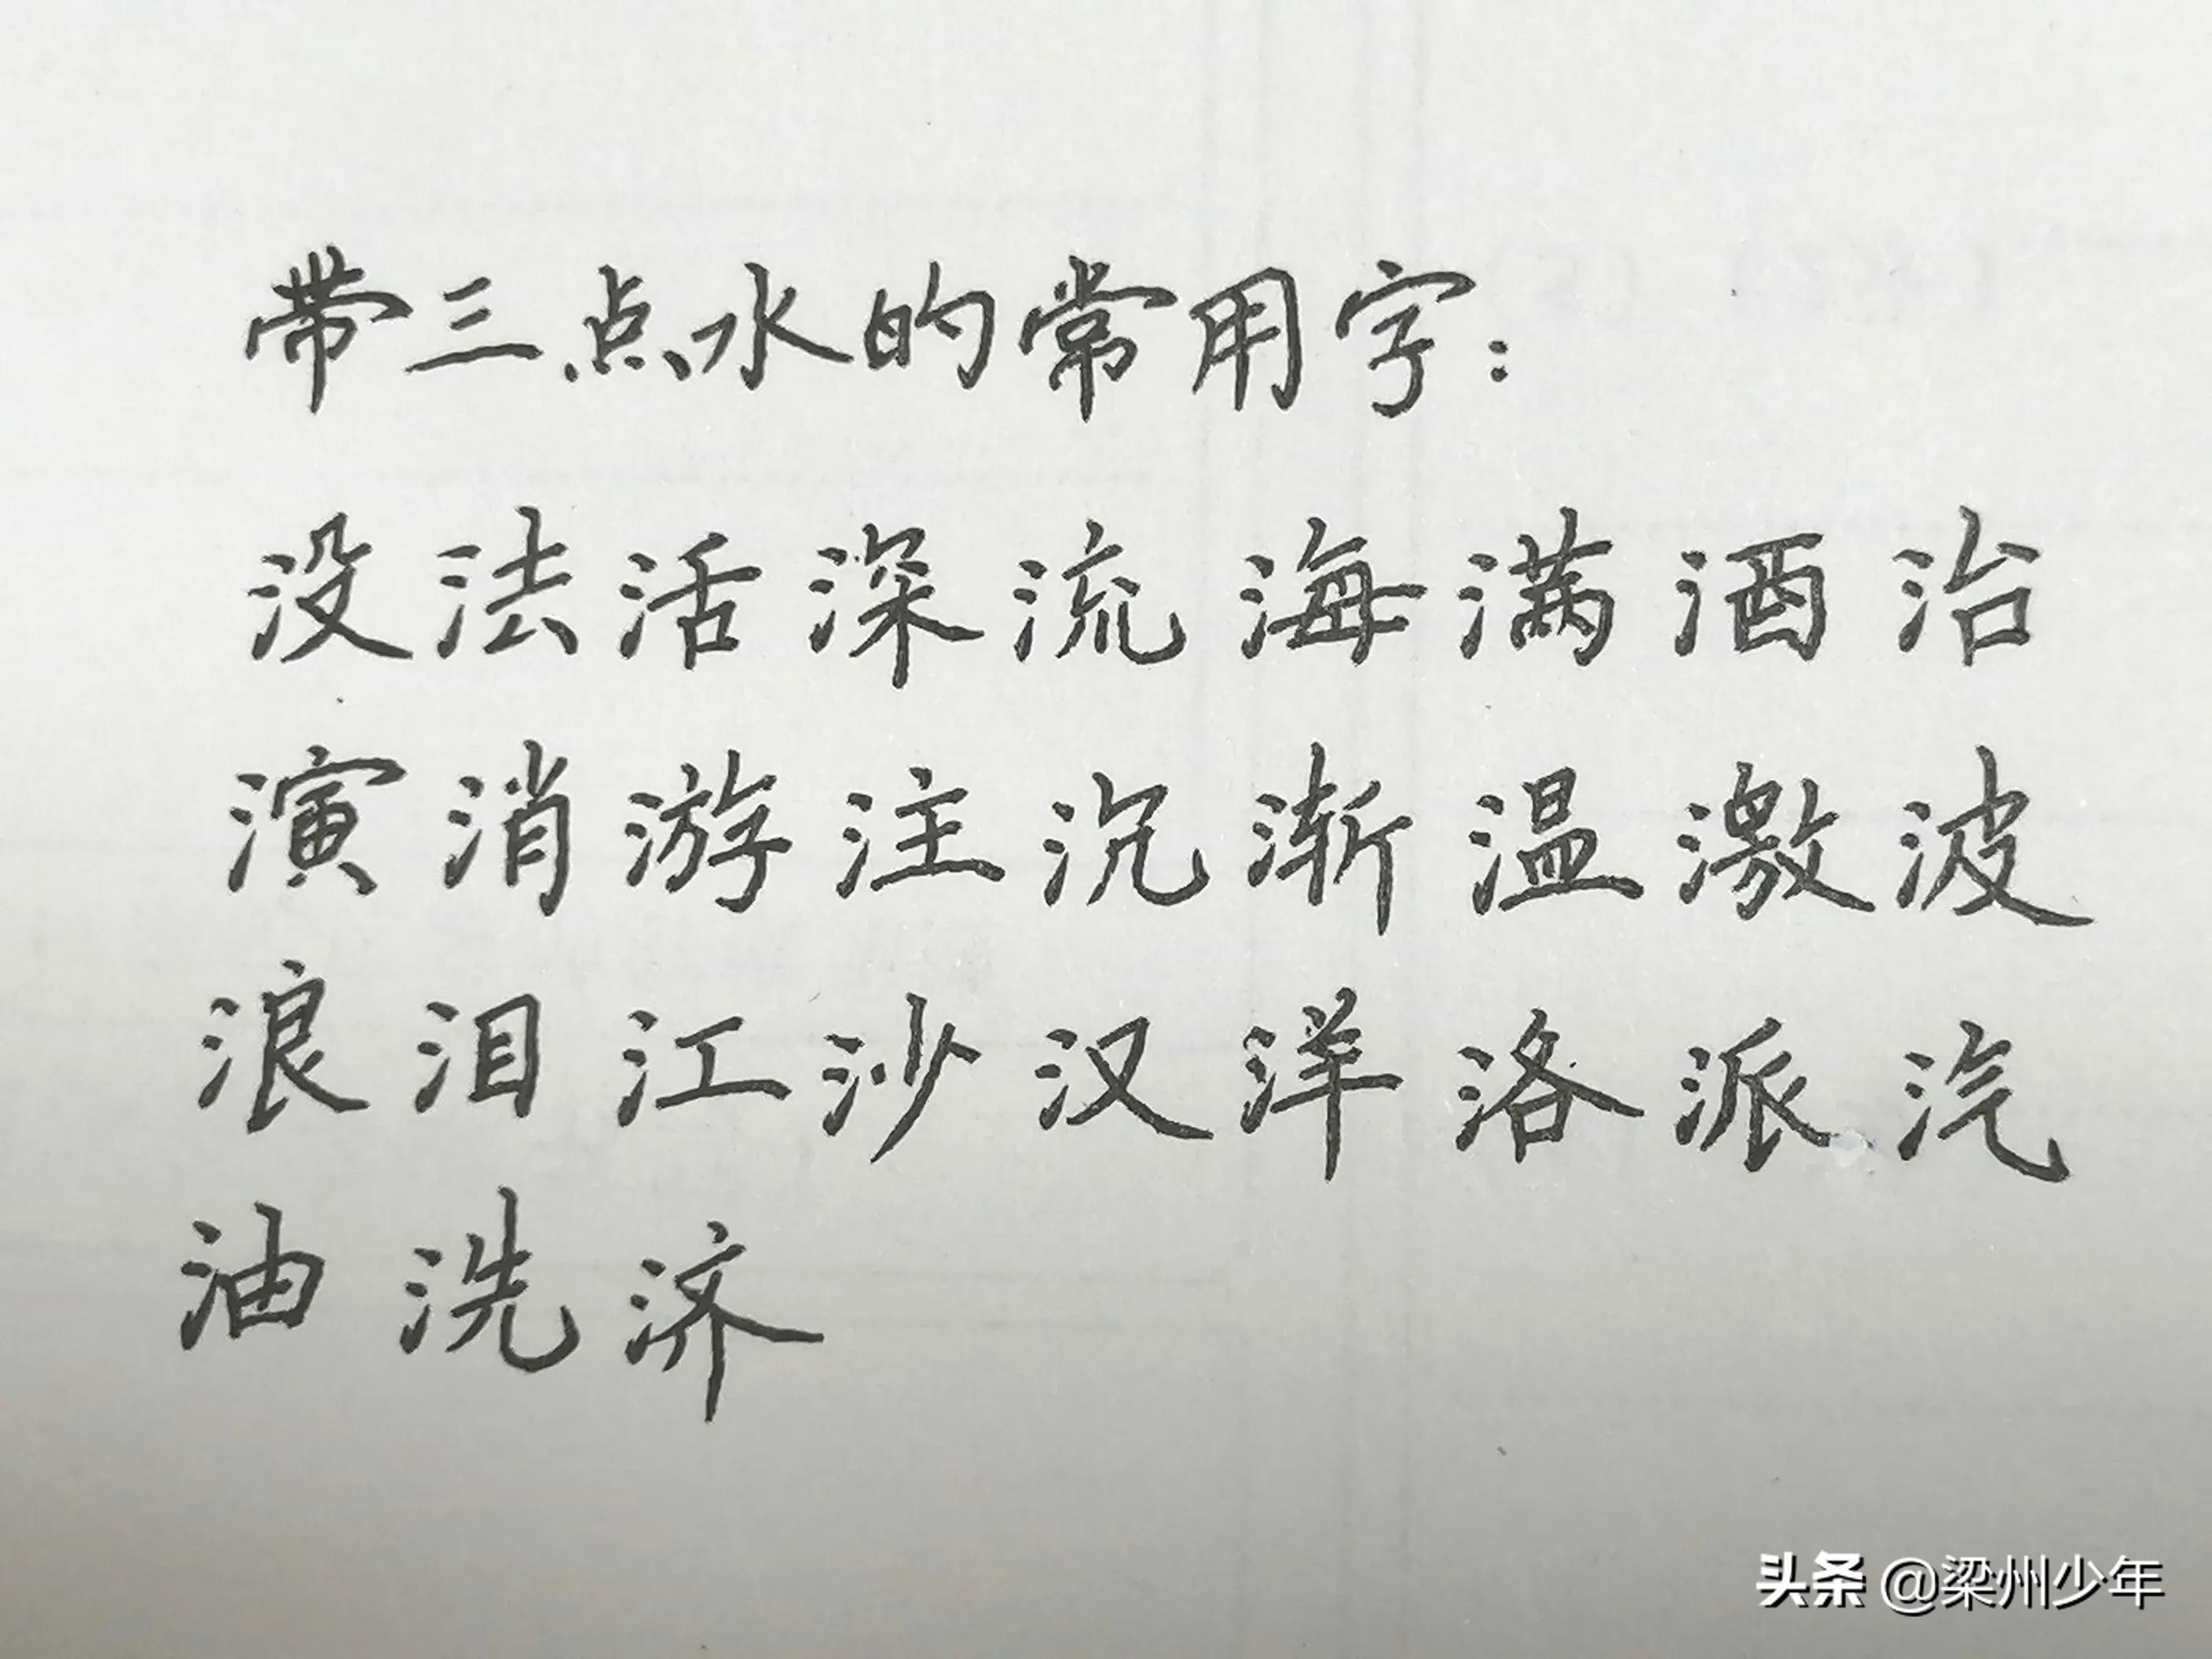 带三点水的常用字:
没法活深流海满酒治
演消游注沉渐温激波
浪泪江沙汉洋洛派汽
油洗济
头条 @梁州少年